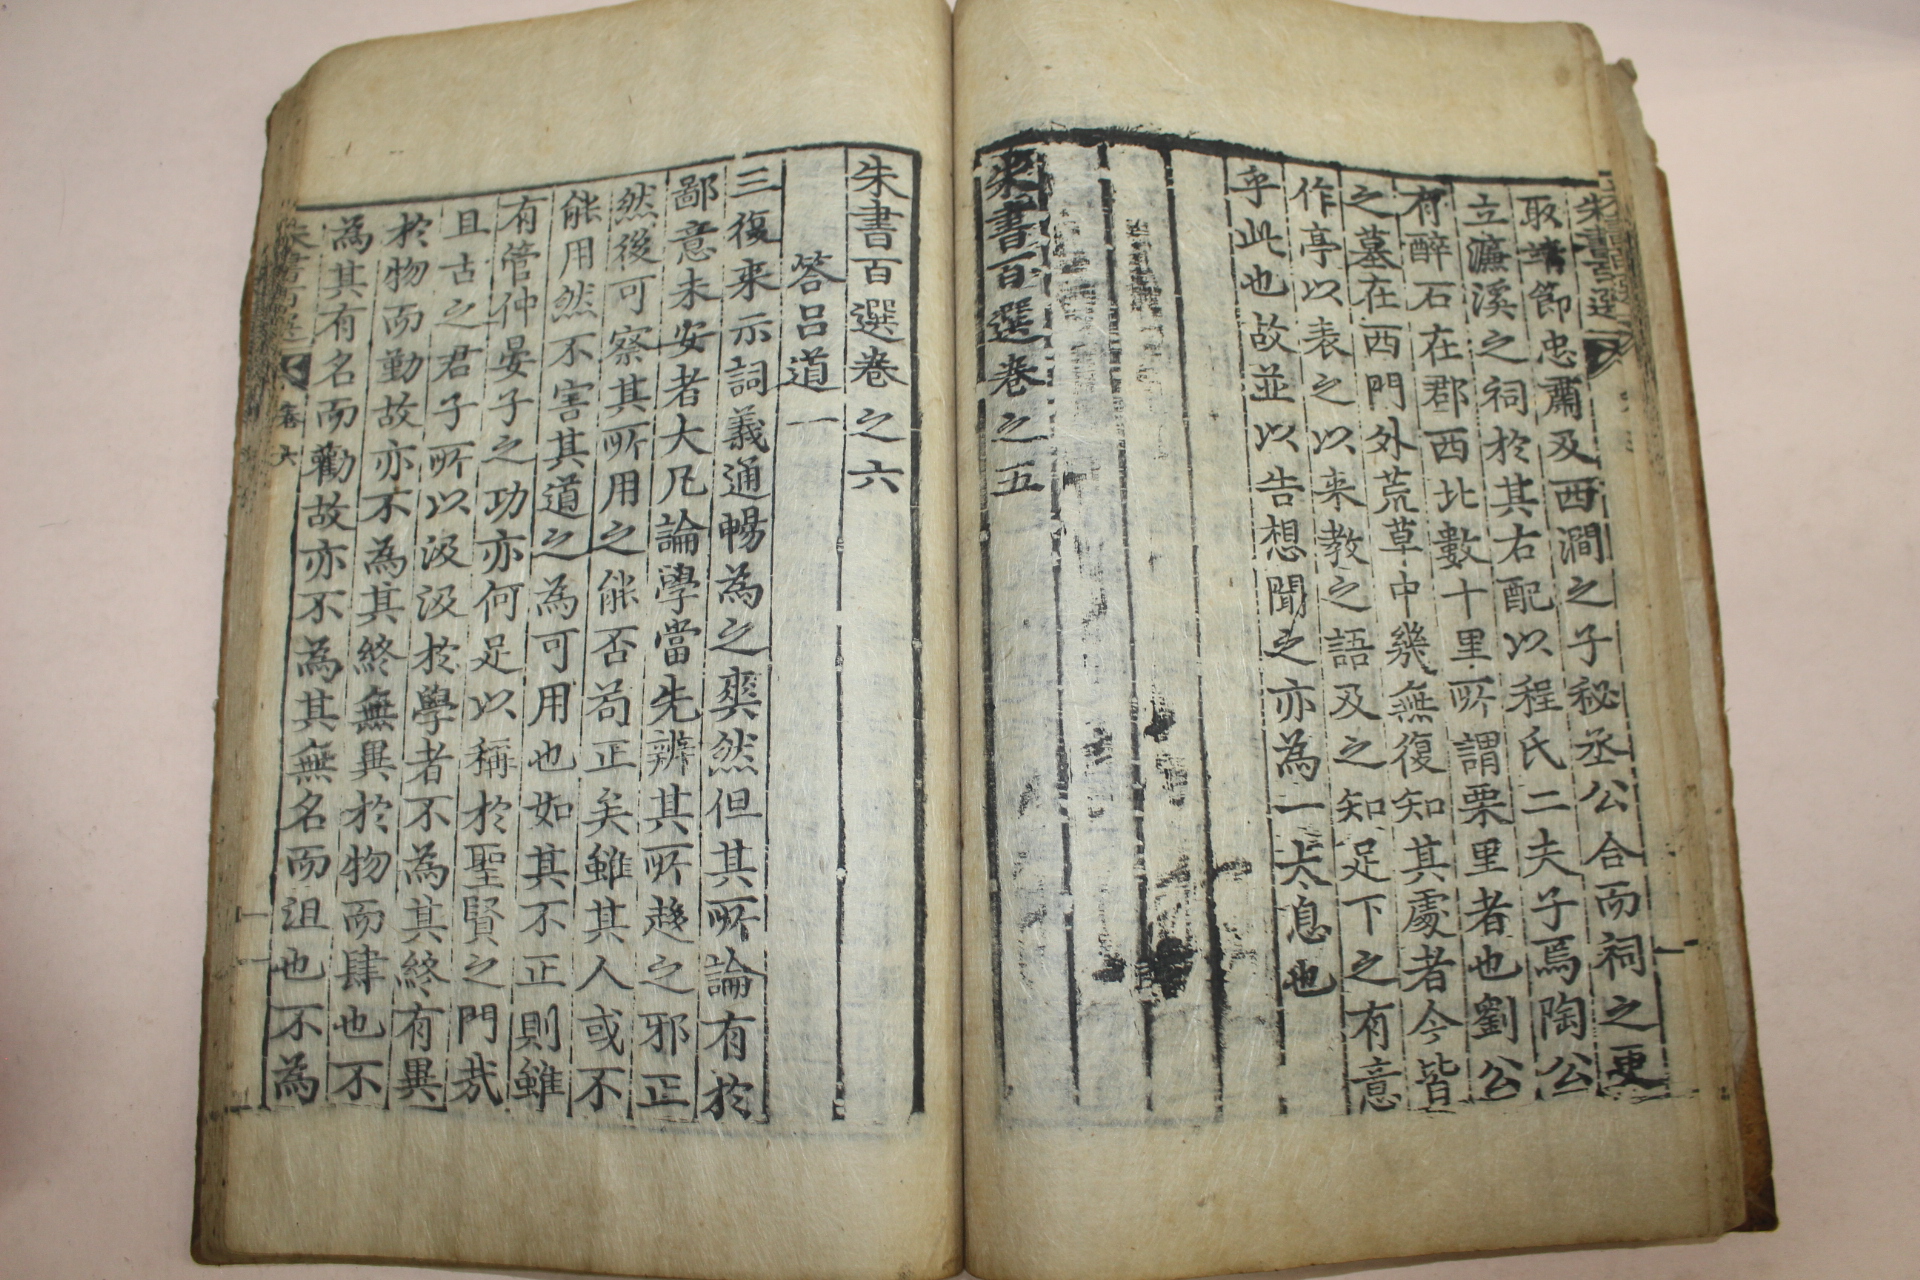 朱書百選
取靖節忠肅及西澗之子秘丞公合而祠之更
立濂溪之祠於其右配以程氏二夫子焉陶公
有醉石在郡西北數十里所謂栗里者也劉公
之墓在西門外荒草中幾無復知其處者今皆
作亭以表之以来教之語及之知足下之有意
乎此也故並以告想聞之亦為一大息也
朱書百選卷之五
朱書百選卷之六
答呂道一
三復来示詞義通暢為之爽然但其所論有於
鄙意未安者大凡論學當先辨其所趍之邪正
然後可察其所用之能否苟正矣雖其人或不
能用然不害其道之為可用也如其不正則雖
有管仲晏子之功亦何足以稱於聖賢之門哉
且古之君子所以汲汲於學者不為其終有異
於物而勤故亦不為其終無異於物而肆也不
為其有名而勸故亦不為其無名而沮也不為
朱書百選 卷六